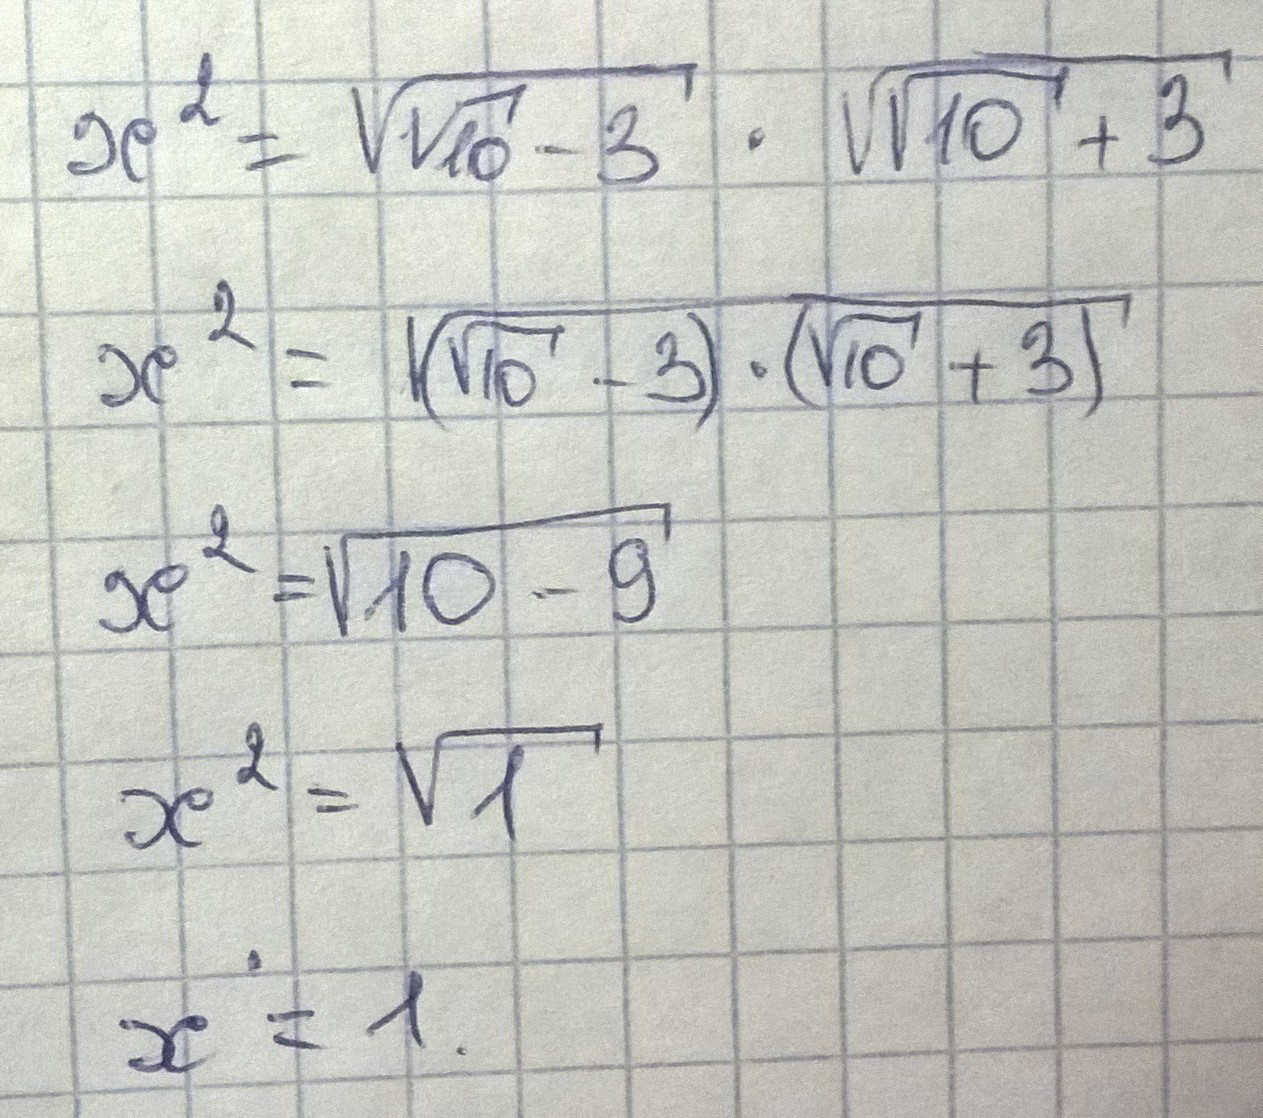 x² = √(√10 - 3) · √(√10 + 3)
x² = √((√10 - 3) · (√10 + 3))
x² = √(10 - 9)
x² = √1
x = 1.